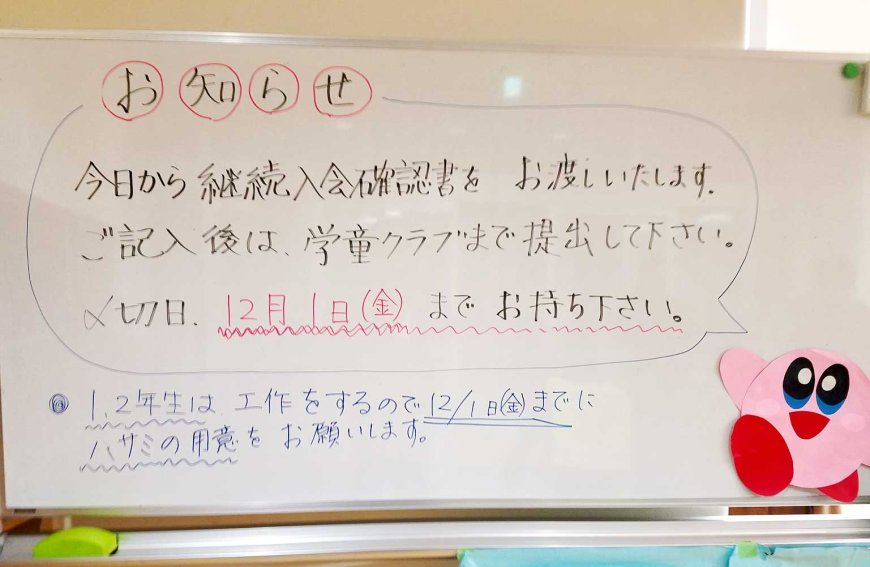 お知らせ
今日から継続入会確認書を お渡しいたします.
ご記入後は、学童クラブまで提出して下さい。
〆切日、12月1日(金)までお持ち下さい。
◎ 1、2年生は 工作をするので12/1日(金)までに
ハサミの用意をお願いします。